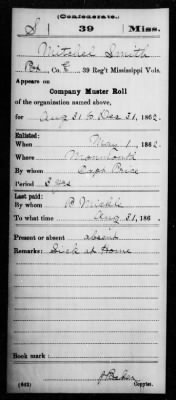 (Confederate.)
S 39 Miss.
Mitchel Smith
Co. E, 39 Reg't Mississippi Vols.
Appears on
Company Muster Roll
of the organization named above,
for Aug 31 to Dec 31, 1862.
Enlisted:
When May 1, 1862.
Where
By whom Capt Price
Period 3 yrs
Last paid:
By whom
To what time Aug 31, 186 .
Present or absent absent
Remarks: Sick at Home
Book mark:
(642)
Copyist.